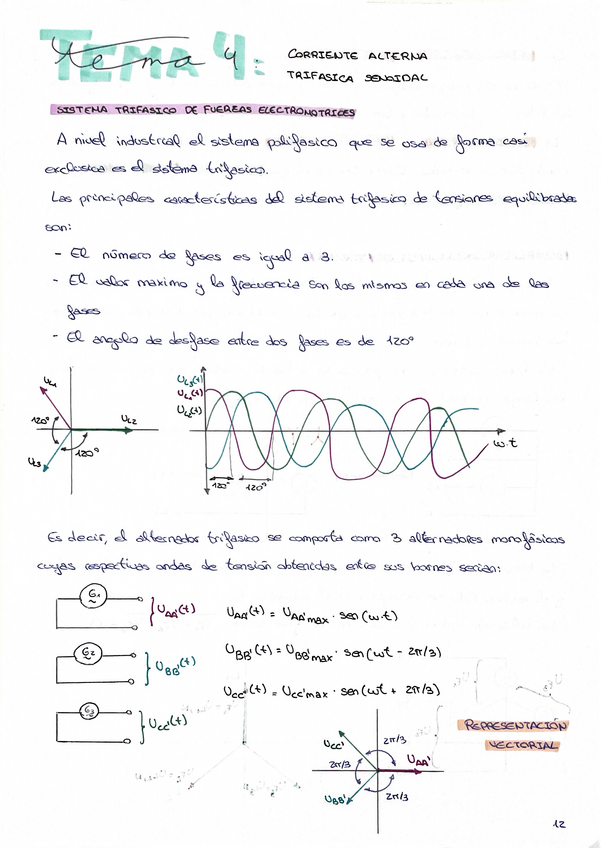 TEMA 4:
Tema
CORRIENTE ALTERNA
TRIFASICA SENOIDAL
SISTEMA TRIFASICO DE FUERZAS ELECTROMOTRICES
A nivel industrial el sistema polifasico que se usa de forma casi
exclusica es el sistema trifasico.
Las principales características del sistema trifasico de tensiones equilibradas
son:
- El número de fases es igual a 3.
- El valor maximo y la frecuencia son los mismos en cada una de las
fases
- El angulo de desfase entre dos fases es de 120º
UL1
UL2
UL3
120º
120º
UL3(t)
UL1(t)
UL2(t)
ω.t
120º
120º
Es decir, el alternador trifasico se comporta como 3 alternadores monofásicos
cuyas respectivas ondas de tensión obtenidas entre sus bornes serian:
G1
~
UAA'(t)
UAA'(t) = UAA'max · sen(ω·t)
G2
~
UBB'(t)
UBB'(t) = UBB'max · sen(ωt - 2π/3)
G3
~
UCC'(t)
UCC'(t) = UCC'max · sen(ωt + 2π/3)
REPRESENTACIÓN
VECTORIAL
UCC'
2π/3
UAA'
2π/3
UBB'
2π/3
12